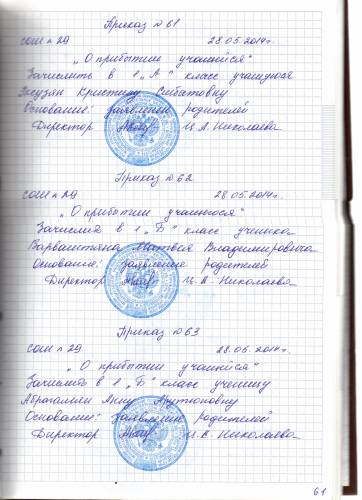 Приказ № 61
СОШ № 29 28.05.2014г.
„О прибытие учащийся“
Зачислить в 1 „А“ класс учащуюся
Кристину Смбатовну
Основание: заявление родителей
Директор Ц.А. Николаева
Приказ № 62
СОШ № 29 28.05.2014г.
„О прибытие учащиюся“
Зачислил в 1 „Б“ класс ученика
Матвея Владимировича
Основание: заявление родителей
Директор Ц.А. Николаева
Приказ № 63
СОШ № 29 28.05.2014г.
„О прибытие учащийся“
Зачислить в 1 „Б“ класс ученицу
Анну Арутюновну
Основание: Заявление родителей
Директор Николаева
61